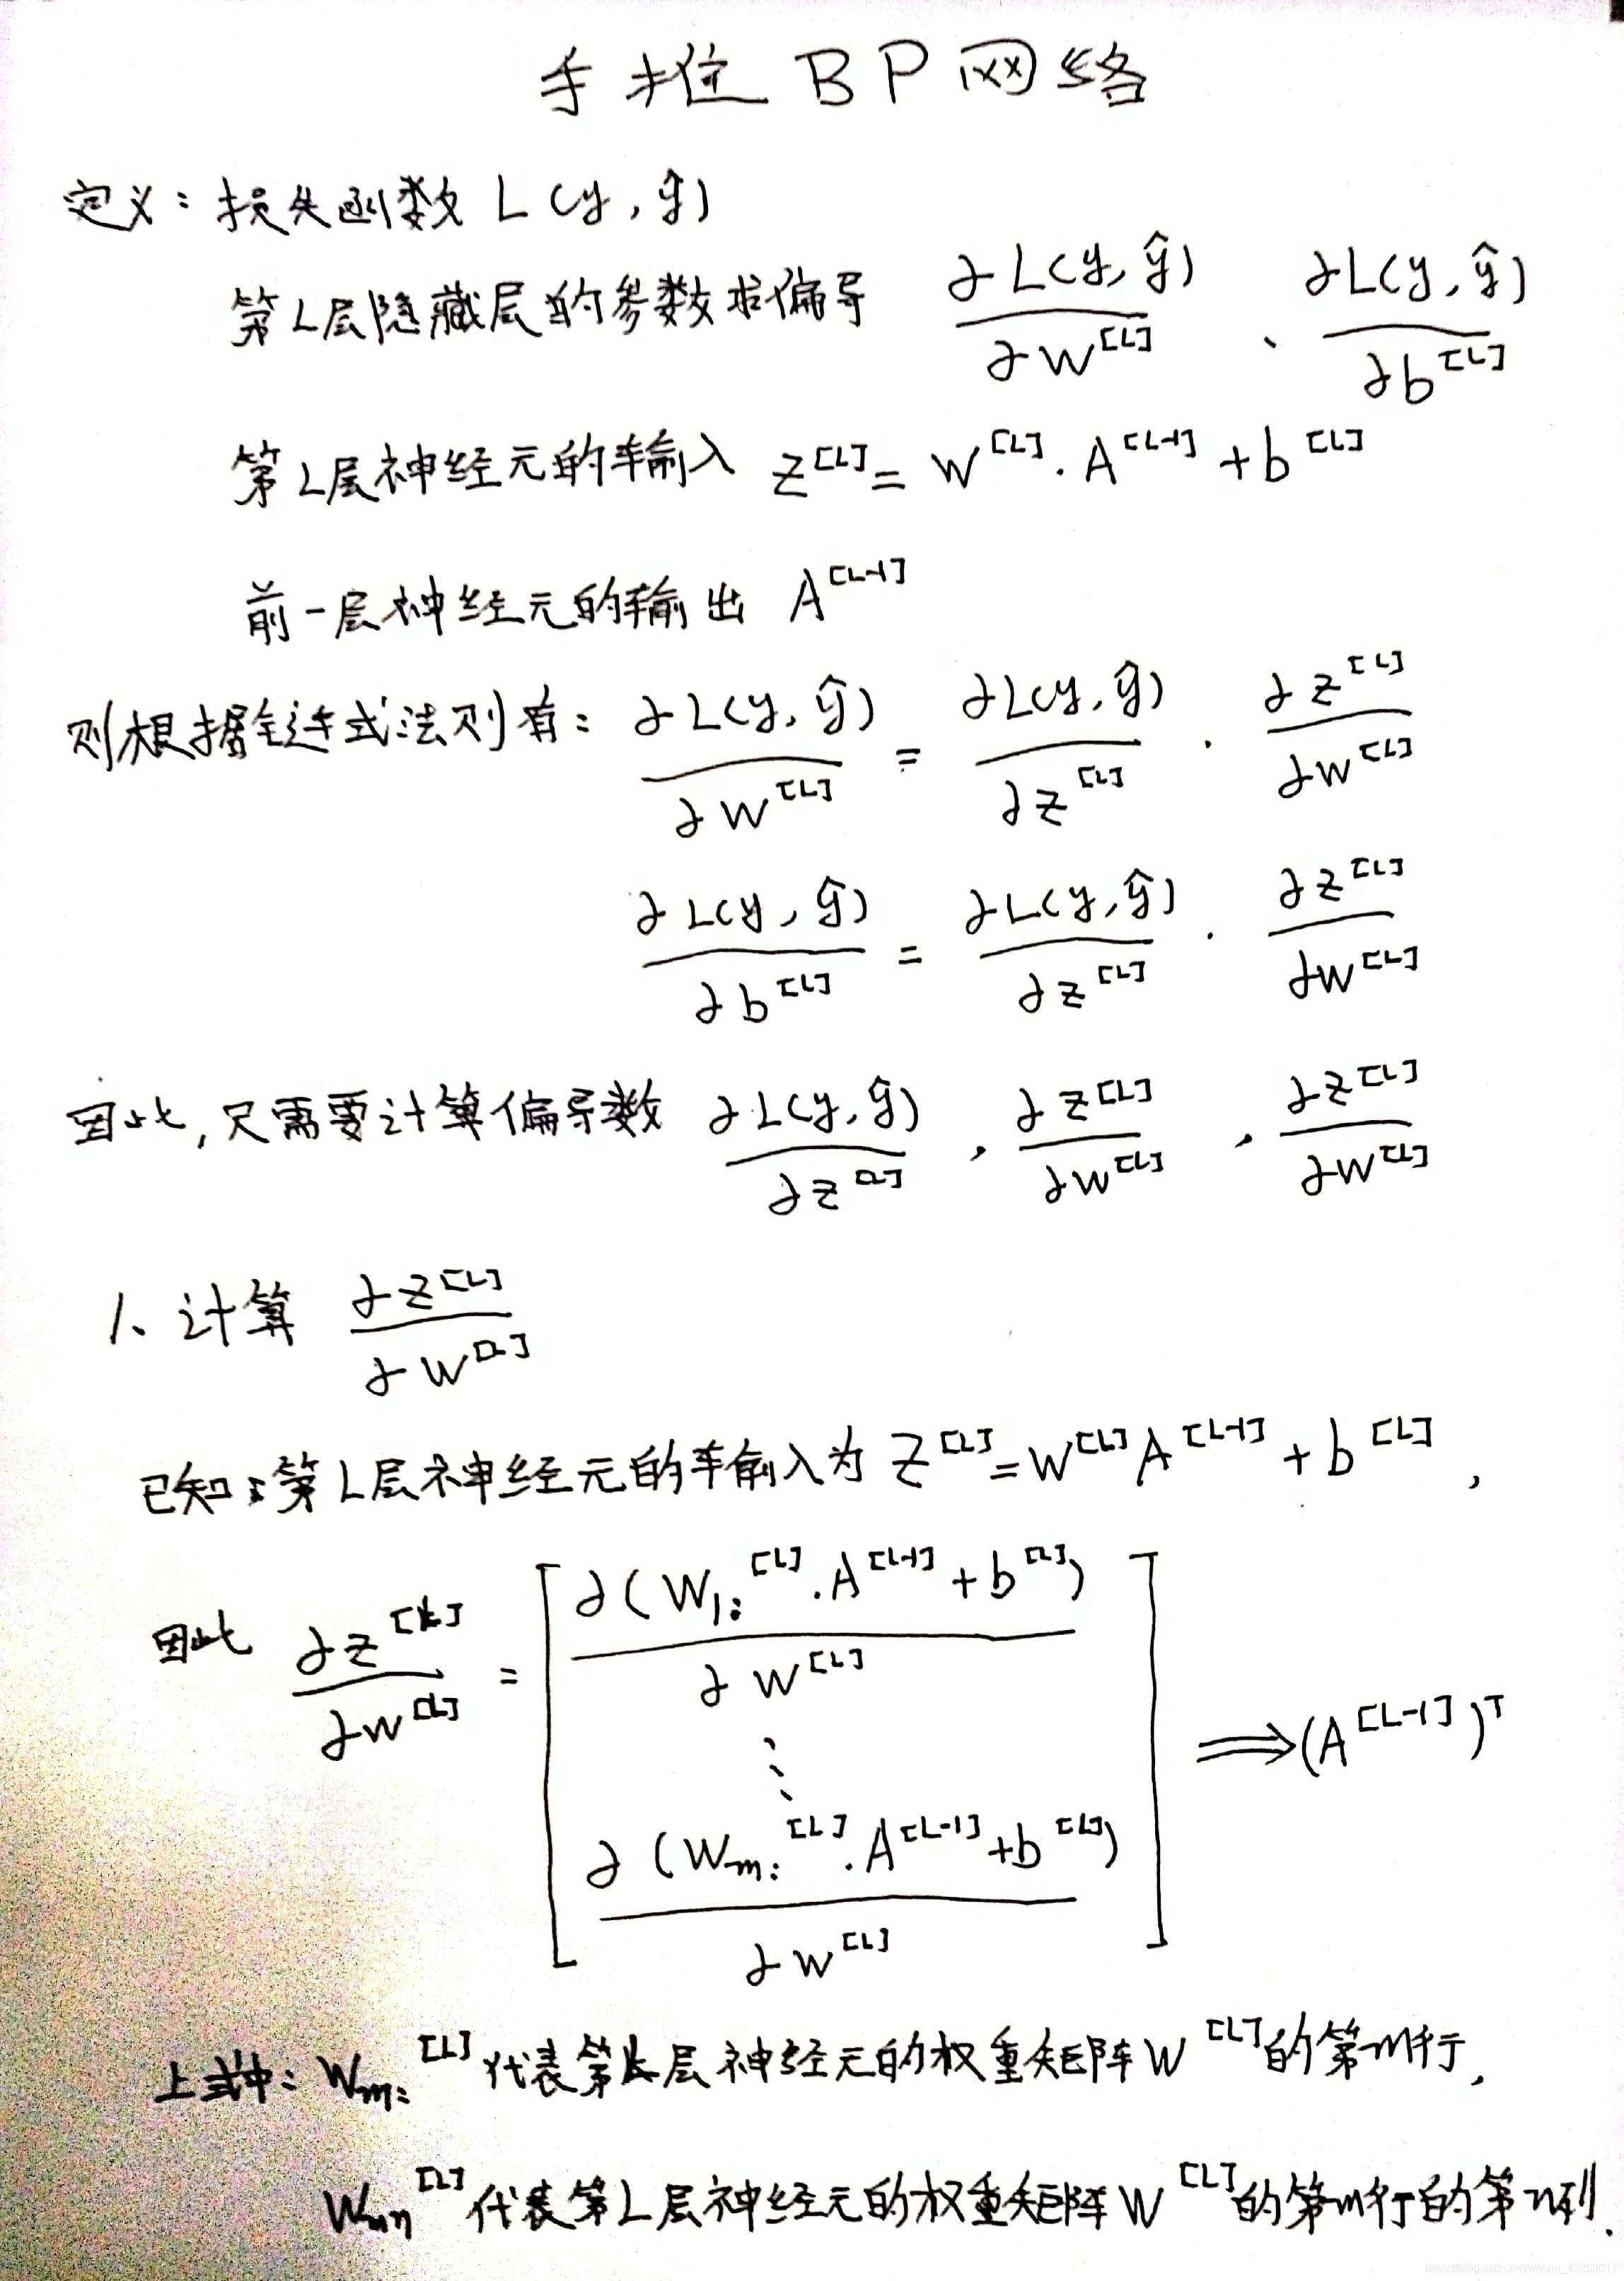 手推BP网络
定义：损失函数 L(y, ŷ)
第L层隐藏层的参数求偏导 ∂L(y, ŷ)/∂W^[L] 、 ∂L(y, ŷ)/∂b^[L]
第L层神经元的输入 Z^[L] = W^[L] · A^[L-1] + b^[L]
前一层神经元的输出 A^[L-1]
则根据链式法则有： ∂L(y, ŷ)/∂W^[L] = ∂L(y, ŷ)/∂Z^[L] · ∂Z^[L]/∂W^[L]
∂L(y, ŷ)/∂b^[L] = ∂L(y, ŷ)/∂Z^[L] · ∂Z^[L]/∂W^[L]
因此, 只需要计算偏导数 ∂L(y, ŷ)/∂Z^[L] , ∂Z^[L]/∂W^[L] , ∂Z^[L]/∂W^[L]
1、计算 ∂Z^[L]/∂W^[L]
已知：第L层神经元的输入为 Z^[L] = W^[L] A^[L-1] + b^[L] ,
因此 ∂Z^[L]/∂W^[L] = [ ∂(W_1:^[L] · A^[L-1] + b^[L])/∂W^[L] ⋮ ∂(W_m:^[L] · A^[L-1] + b^[L])/∂W^[L] ] ⟹ (A^[L-1])^T
上式中： W_m:^[L] 代表第L层神经元的权重矩阵W^[L]的第m行,
W_mn^[L] 代表第L层神经元的权重矩阵W^[L]的第m行的第n列.
https://blog.csdn.net/weixin_43258017